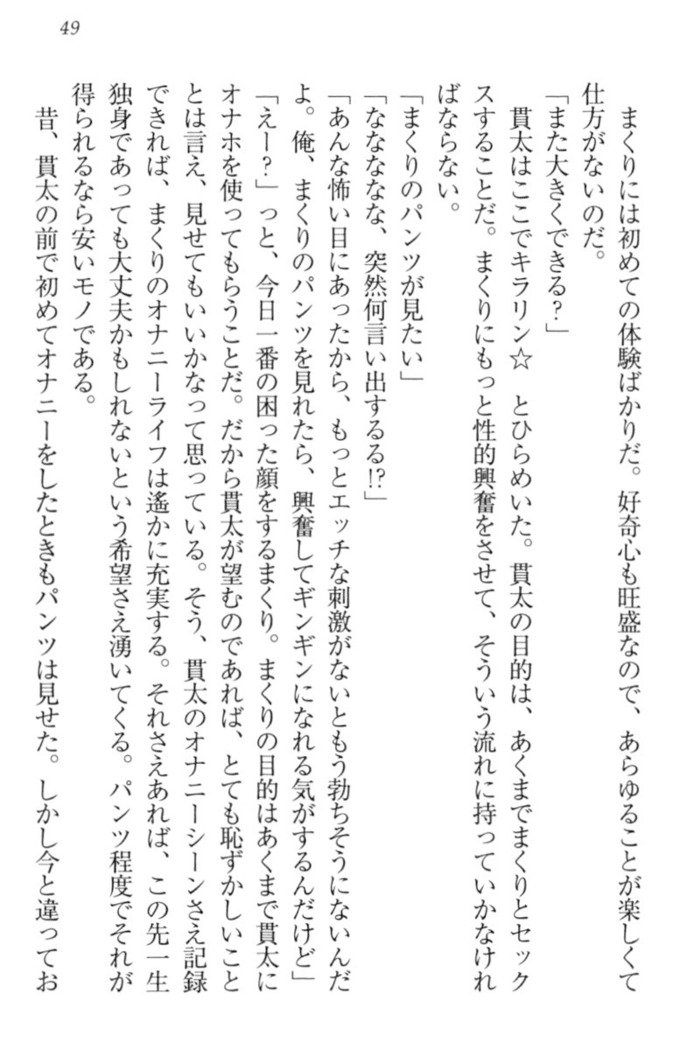 49
まくりには初めての体験ばかりだ。好奇心も旺盛なので、あらゆることが楽しくて
仕方がないのだ。
「また大きくできる？」
貫太はここでキラリン☆　とひらめいた。貫太の目的は、あくまでまくりとセック
スすることだ。まくりにもっと性的興奮をさせて、そういう流れに持っていかなけれ
ばならない。
「まくりのパンツが見たい」
「ななななな、突然何言い出するる!?」
「あんな怖い目にあったから、もっとエッチな刺激がないともう勃ちそうにないんだ
よ。俺、まくりのパンツを見れたら、興奮してギンギンになれる気がするんだけど」
「えー？」っと、今日一番の困った顔をするまくり。まくりの目的はあくまで貫太に
オナホを使ってもらうことだ。だから貫太が望むのであれば、とても恥ずかしいこと
とは言え、見せてもいいかなって思っている。そう、貫太のオナニーシーンさえ記録
できれば、まくりのオナニーライフは遙かに充実する。それさえあれば、この先一生
独身であっても大丈夫かもしれないという希望さえ湧いてくる。パンツ程度でそれが
得られるなら安いモノである。
昔、貫太の前で初めてオナニーをしたときもパンツは見せた。しかし今と違ってお